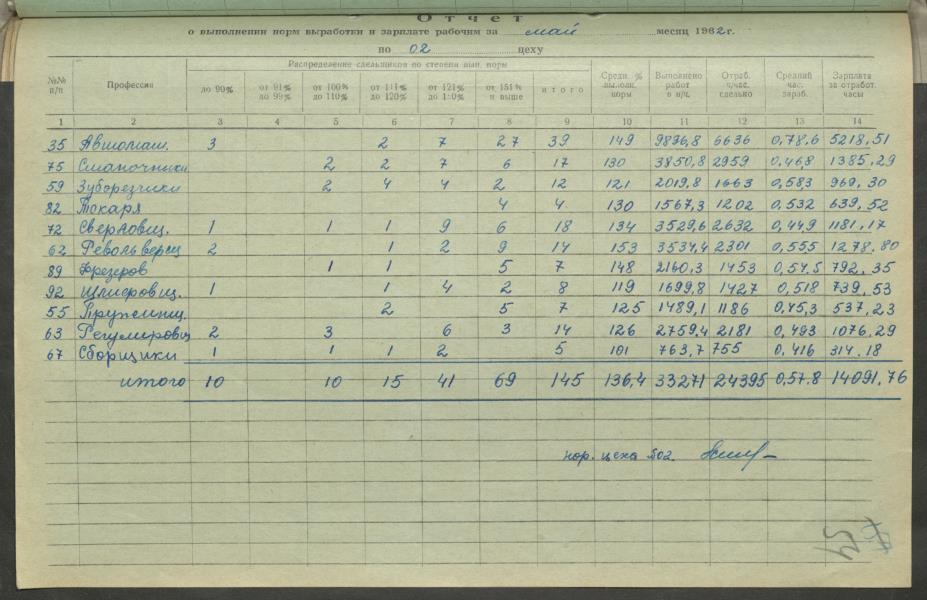 Отчет
о выполнении норм выработки и зарплате рабочим за май месяц 1962 г.
по 02 цеху
№№ п/п Профессия Распределение сдельщиков по степени вып. норм Средн. % выполн. норм Выполнено работ в н/ч. Отраб. ч/час. сдельно Средний час. зараб. Зарплата за отработ. часы
до 90% от 91% до 99% от 100% до 110% от 111% до 120% от 121% до 150% от 151% и выше итого
1 2 3 4 5 6 7 8 9 10 11 12 13 14
35 Автомат. 3 2 7 27 39 149 9896,8 6636 0,78,6 5218,51
75 2 2 7 6 17 130 3850,8 2959 0,468 1385,29
59 Зуборезчики 2 4 4 2 12 121 2019,8 1663 0,583 969,30
82 Токаря 4 4 130 1567,3 1202 0,532 639,52
72 Сверловщ. 1 1 1 9 6 18 134 3529,6 2632 0,449 1181,17
62 Револьверщ 2 1 2 9 14 153 3534,4 2301 0,555 1278,80
89 Фрезеров 1 1 5 7 148 2160,3 1453 0,54.5 792,35
92 Шлифовщ. 1 1 4 2 8 119 1699,8 1427 0,518 739,53
55 Пружинщ. 2 5 7 125 1489,1 1186 0,45,3 537,23
63 Регулировщ 2 3 6 3 14 126 2759,4 2181 0,493 1076,29
67 Сборщики 1 1 1 2 5 101 763,7 755 0,416 314,18
итого 10 10 15 41 69 145 136,4 33271 24395 0,57.8 14091.76
нор. цеха №02.